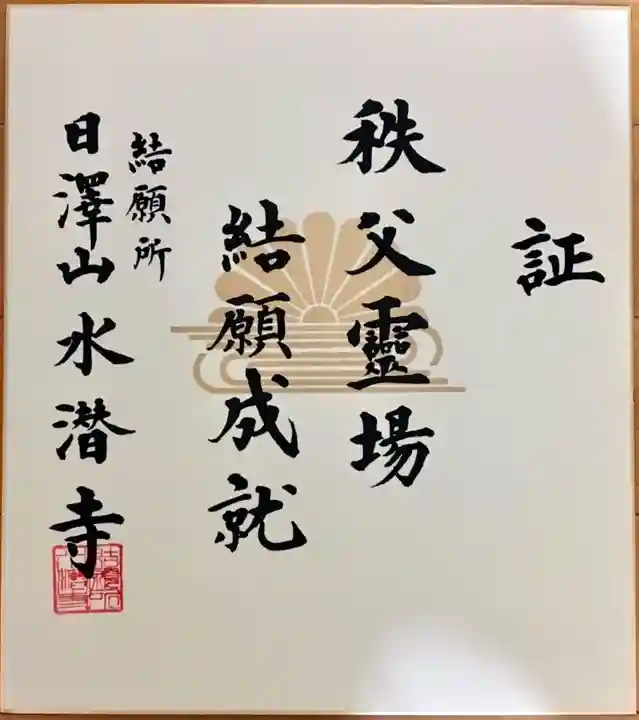 証
秩父靈場
結願成就
結願所
日澤山水潜寺